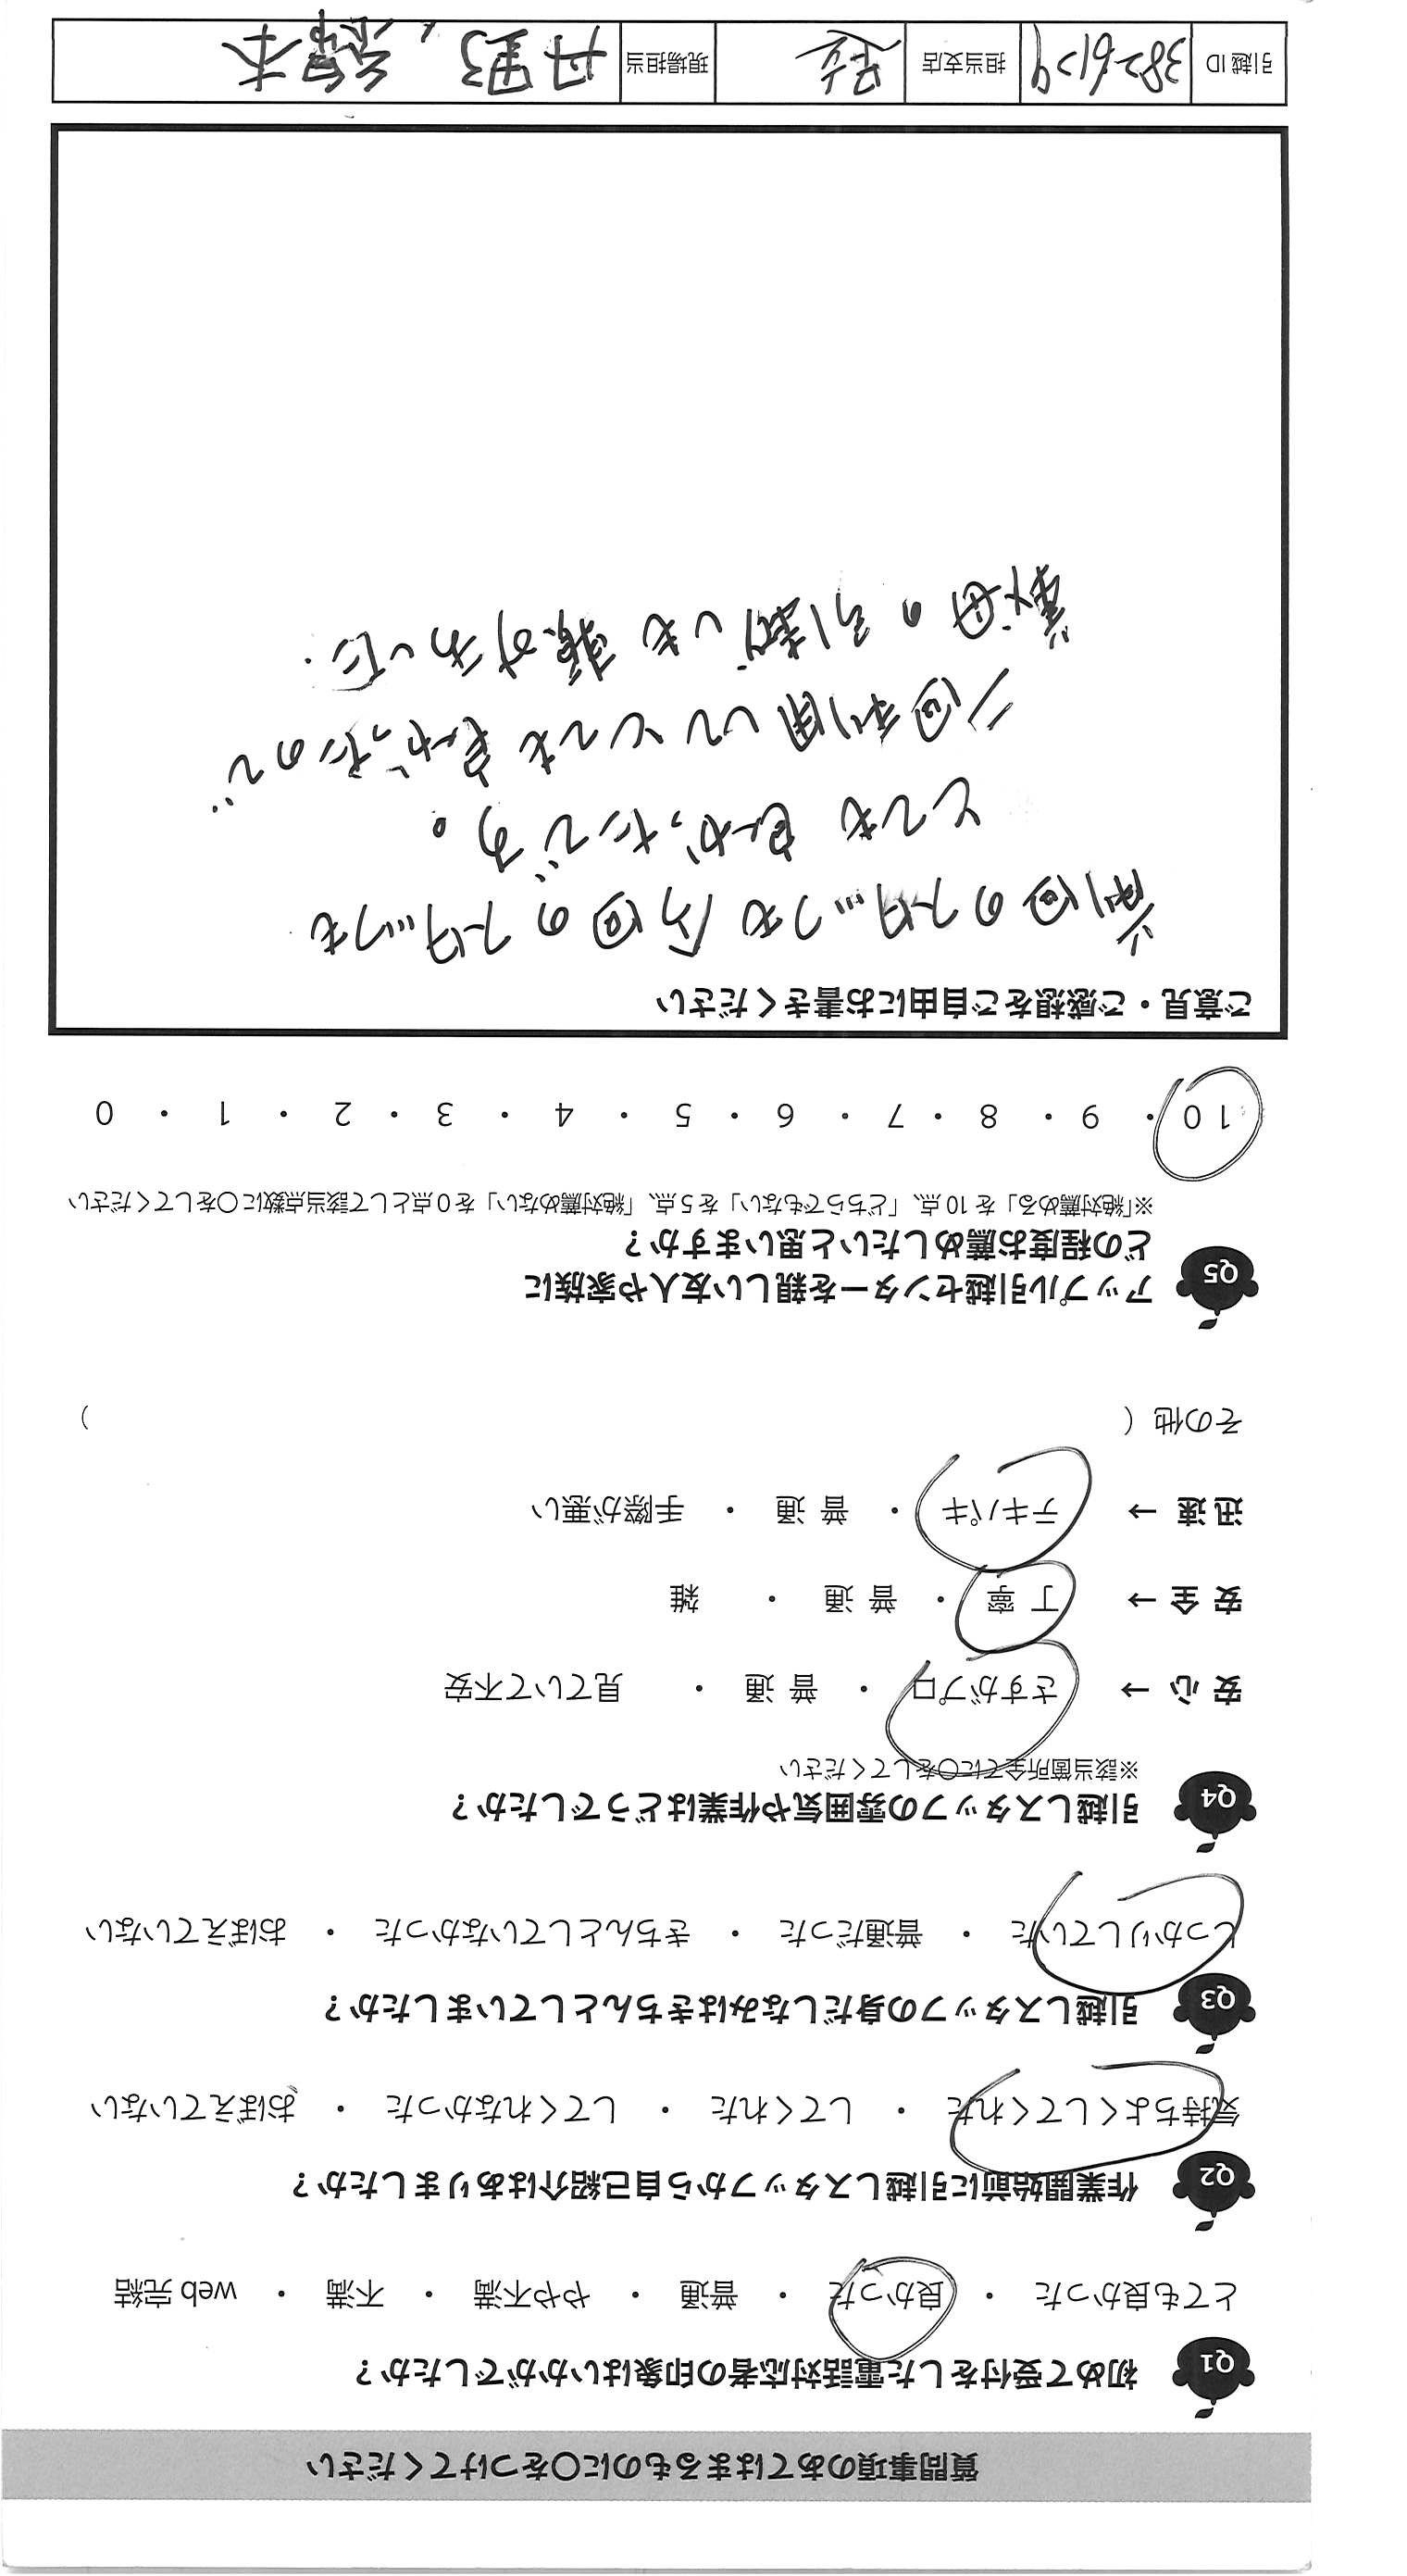 質問事項のあてはまるものに〇をつけてください
Q1 初めて受付をした電話対応者の印象はいかがでしたか？
とても良かった ・ 良かった ・ 普通 ・ やや不満 ・ 不満 ・ web 完結
Q2 作業開始前に引越しスタッフから自己紹介はありましたか？
気持ちよくしてくれた ・ してくれた ・ してくれなかった ・ おぼえていない
Q3 引越しスタッフの身だしなみはきちんとしていましたか？
しっかりしていた ・ 普通だった ・ きちんとしていなかった ・ おぼえていない
Q4 引越しスタッフの雰囲気や作業はどうでしたか？
※該当箇所全てに〇をしてください
安 心 → さすがプロ ・ 普 通 ・ 見ていて不安
安 全 → 丁 寧 ・ 普 通 ・ 雑
迅 速 → テキパキ ・ 普 通 ・ 手際が悪い
その他（ ）
Q5 アップル引越センターを親しい友人や家族に
どの程度お薦めしたいと思いますか？
※「絶対薦める」を 10 点、「どちらでもない」を 5 点、「絶対薦めない」を 0 点として該当点数に〇をしてください
10 ・ 9 ・ 8 ・ 7 ・ 6 ・ 5 ・ 4 ・ 3 ・ 2 ・ 1 ・ 0
ご意見・ご感想をご自由にお書きください
前回のスタッフも今回のスタッフも
とても良かったです。
二回利用してとても良かったので
義母の引越しも薦めました.
引越 ID 3826129 担当支店 現場担当 丹野、